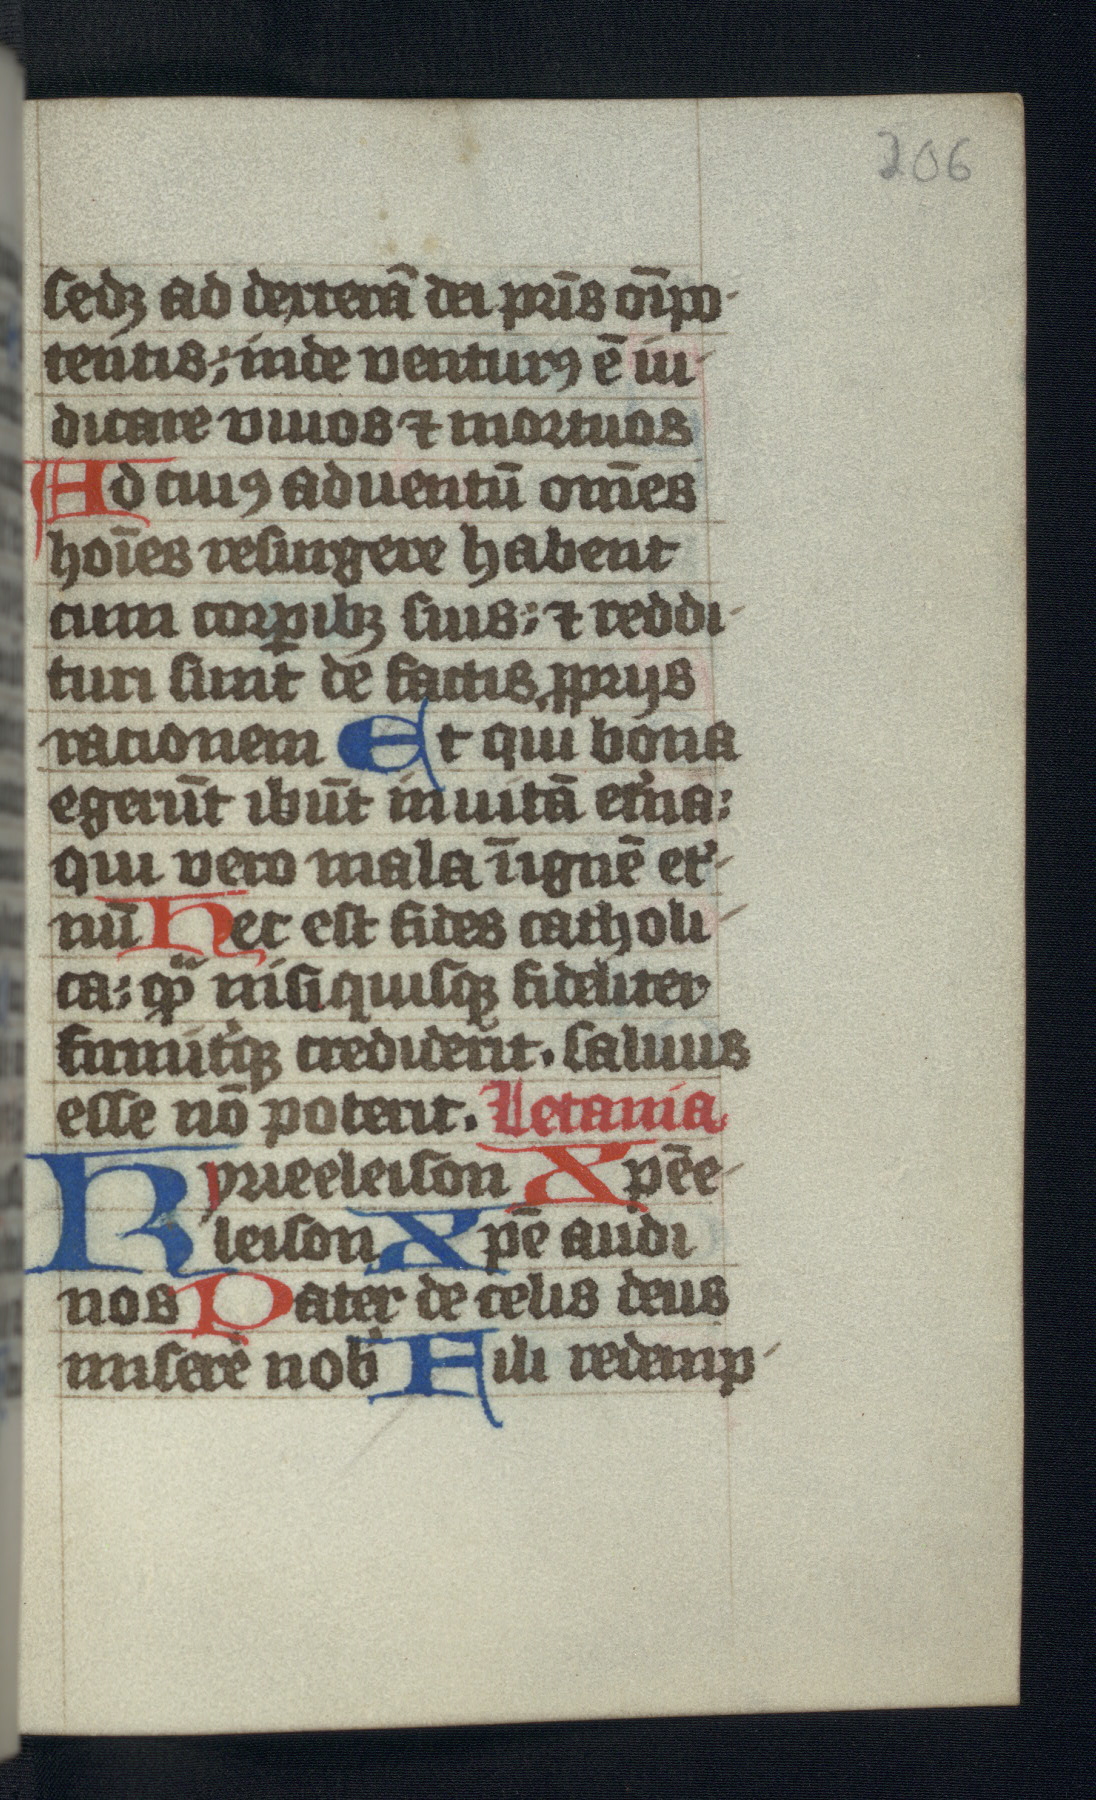 206
sedꝫ ad dexterā dei pr̄is oīpo-
tentis; inde venturꝰ ē iu-
dicare viuos ⁊ mortuos
Ad cuiꝰ aduentū om̄es
hoīes resurgere habent
cum corꝑibꝫ suis; ⁊ reddi-
turi sunt de factis ꝓprijs
racionem Et qui bona
egerūt ibūt in uitā et̾na;
qui vero mala ī ignē et̾-
nū Hec est fides catholi-
ca; qͣ nisi quisqꝫ fideliter
firmit̾qꝫ crediderit. saluus
esse nō poterit. Letania
Kyrieeleison Xpēe-
leison Xpē audi
nos Pater de celis deus
miserē nob̾ Fili redemp-